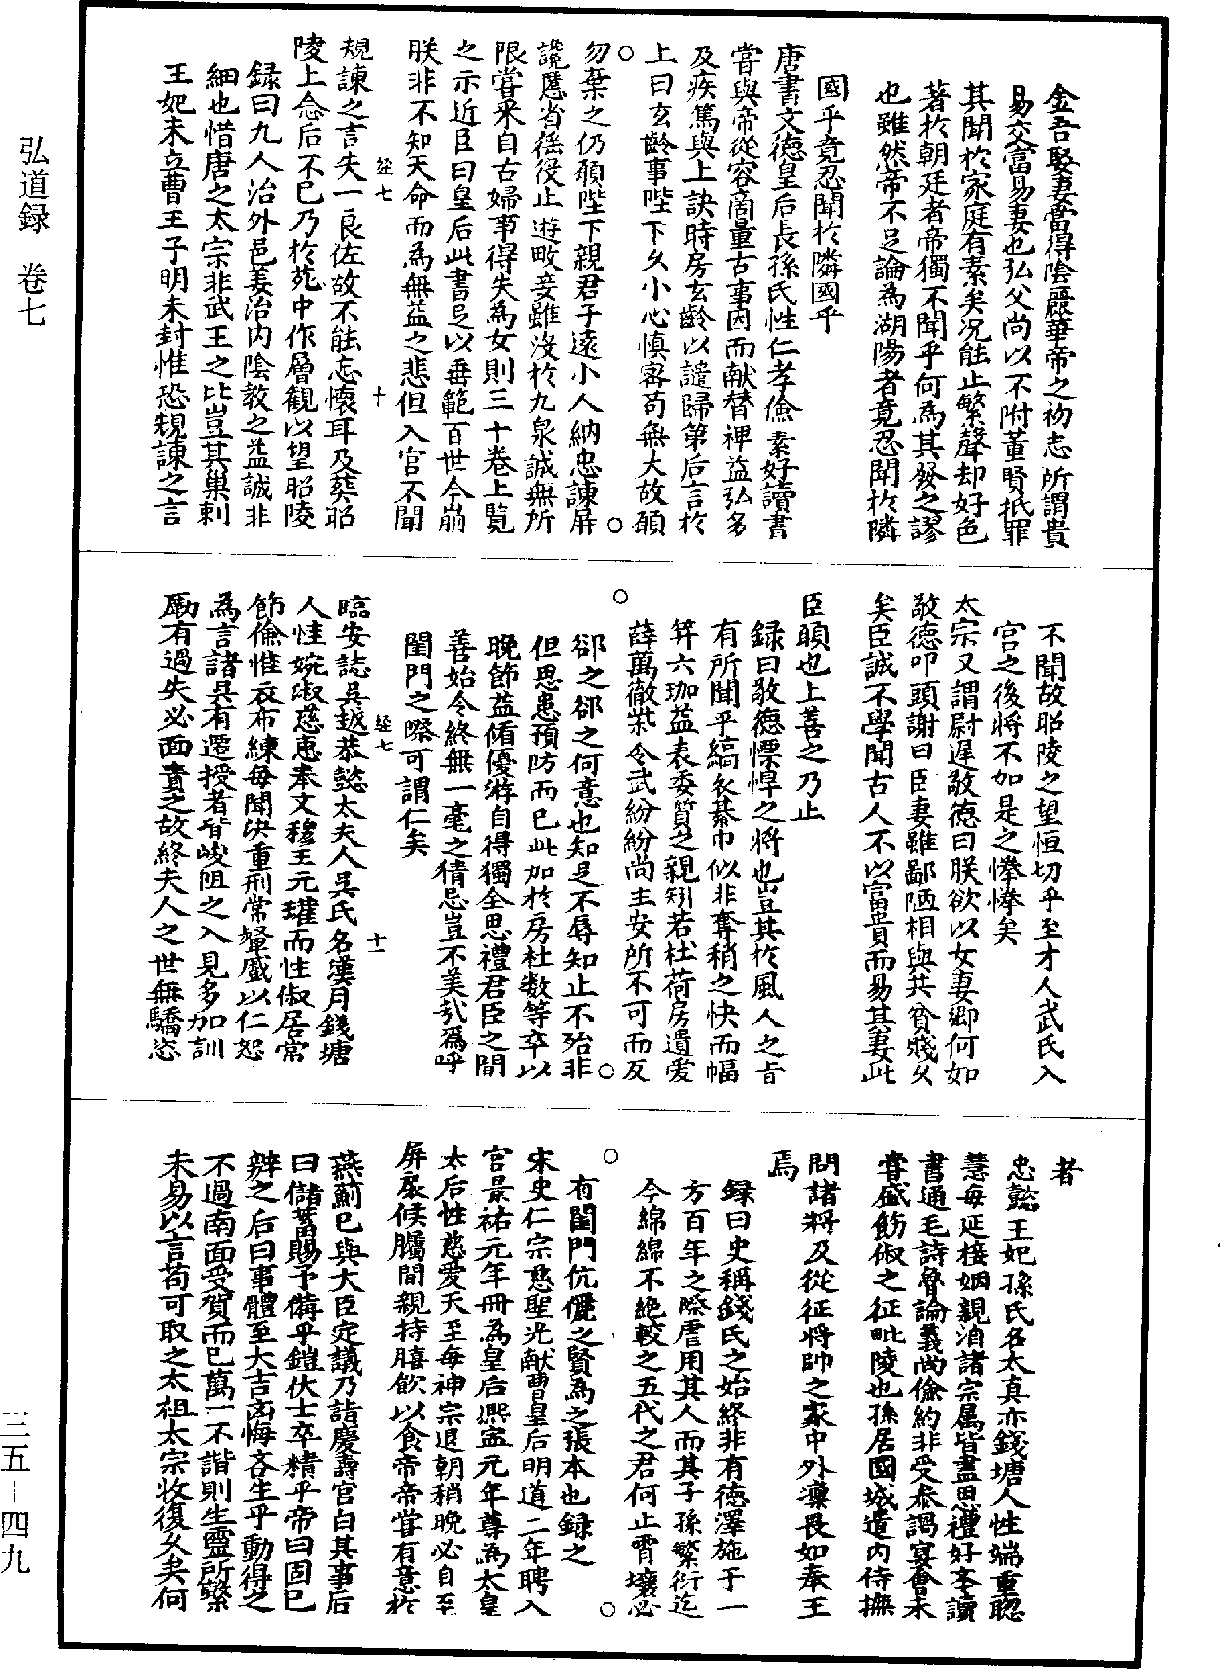 弘道録　卷七
金吾娶妻當得陰麗華帝之初志所謂貴
易交富易妻也弘父尚以不附董賢抵罪
其聞於家庭有素矣況能止繁聲却好色
著於朝廷者帝獨不聞乎何爲其發之謬
也雖然帝不足論爲湖陽者竟忍聞於隣
國乎竟忍聞於隣國乎
唐書文德皇后長孫氏性仁孝儉素好讀書
嘗與帝從容商量古事因而献替裨益弘多
及疾篤與上訣時房玄齡以譴歸第后言於
上曰玄齡事陛下久小心慎密苟無大故願
○　○
勿棄之仍願陛下親君子遠小人納忠諫屏
讒慝省徭役止遊畋妾雖沒於九泉誠無所
限嘗采自古婦事得失爲女則三十卷上覧
之示近臣曰皇后此書足以垂範百世今崩
朕非不知天命而爲無益之悲但入宮不聞
經七　十
規諫之言失一良佐故不能忘懷耳及葬昭
陵上念后不已乃於苑中作層観以望昭陵
録曰九人治外邑姜治内陰教之益誠非
細也惜唐之太宗非武王之比豈其巢剌
王妃未立曹王子明未封惟恐規諫之言
不聞故昭陵之望恒切乎至才人武氏入
宮之後將不如是之惓惓矣
太宗又謂尉遲敬德曰朕欲以女妻卿何如
敬德叩頭謝曰臣妻雖鄙陋相與共貧賤久
矣臣誠不學聞古人不以富貴而易其妻此
臣願也上善之乃止
録曰敬德慓悍之將也豈其於風人之旨
有所聞乎縞衣綦巾似非奪稍之快而幅
笄六珈益表委質之親矧若杜荷房遺愛
薛萬徹柴令武紛紛尚主安所不可而反
○　○
郤之郤之何意也知足不辱知止不殆非
但思患預防而已此加於房杜数等卒以
晚節益脩優游自得獨全恩禮君臣之間
善始令終無一毫之猜忌豈不美哉爲呼
閨門之際可謂仁矣
經七　十一
臨安誌吳越恭懿太夫人吳氏名漢月錢塘
人性婉淑慈惠奉文穆王元瓘而性俶居常
節儉惟衣布練每聞决重刑常顰蹙以仁恕
爲言諸吳有遷授者皆峻阻之入見多加訓
勵有過失必面責之故終夫人之世無驕恣
者
忠懿王妃孫氏名太真亦錢塘人性端重聰
慧每延接姻親洎諸宗属皆盡恩禮好学讀
書通毛詩魯論義尚儉約非受参謁宴會未
嘗盛飭俶之征毗陵也孫居國城遣内侍撫
問諸將及從征將帥之家中外凜畏如奉王
焉
録曰史稱錢氏之始終非有德澤施于一
方百年之際虐用其人而其子孫繁衍迄
今綿綿不絶較之五代之君何止霄壤必
○　○
有閨門伉儷之賢爲之張本也録之
宋史仁宗慈聖光献曹皇后明道二年聘入
宮景祐元年冊爲皇后熙寕元年尊爲太皇
太后性慈愛天至每神宗退朝稍晚必自至
屏扆候矚間親持膳飲以食帝帝嘗有意於
燕薊已與大臣定議乃詣慶壽宮白其事后
曰儲蓄賜予備乎鎧仗士卒精乎帝曰固已
辦之后曰事體至大吉凶悔吝生乎動得之
不過南面受賀而已萬一不諧則生靈所繫
未易以言苟可取之太祖太宗收復久矣何
三五－四九